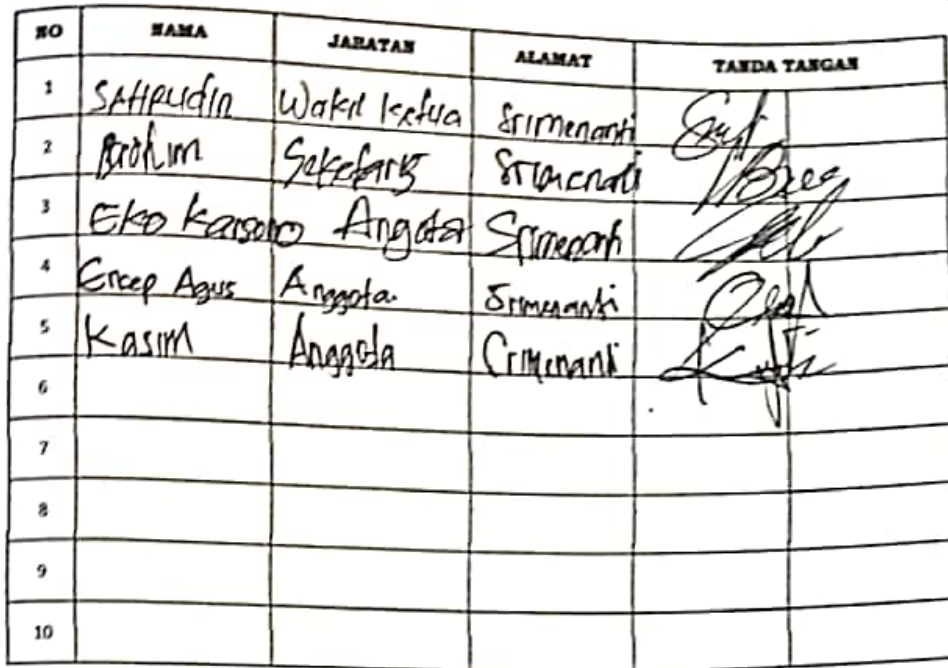 NO NAMA JABATAN ALAMAT TANDA TANGAN
1 SAHRUDIN Wakil Ketua Srimenanti
2 Brohim Seketaris Srimenati
3 Eko Karsono Angota Srimenanti
4 Encep Agus Anggota Srimenanti
5 Kasim Anggota Crimenanti
6
7
8
9
10